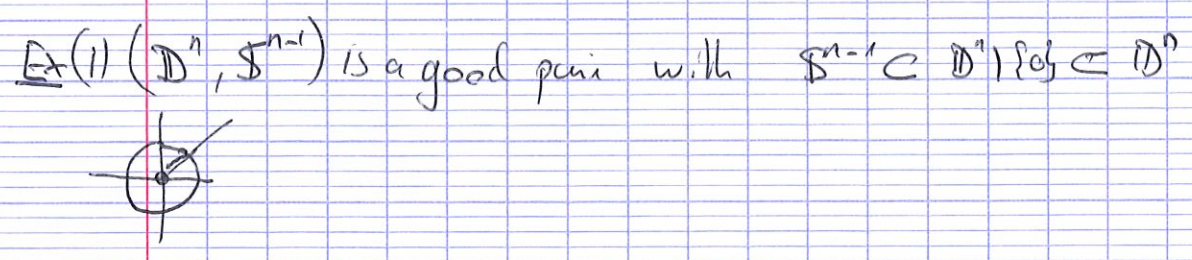 Ex (1) (𝔻ⁿ, 𝕊ⁿ⁻¹) is a good pair with 𝕊ⁿ⁻¹ ⊂ 𝔻ⁿ \ {0} ⊂ 𝔻ⁿ